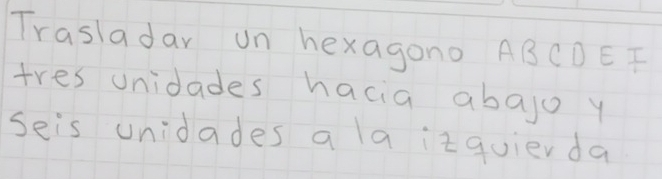 Trasladar un hexagono ABCDEF
tres unidades hacia abajo y
seis unidades a la izquierda